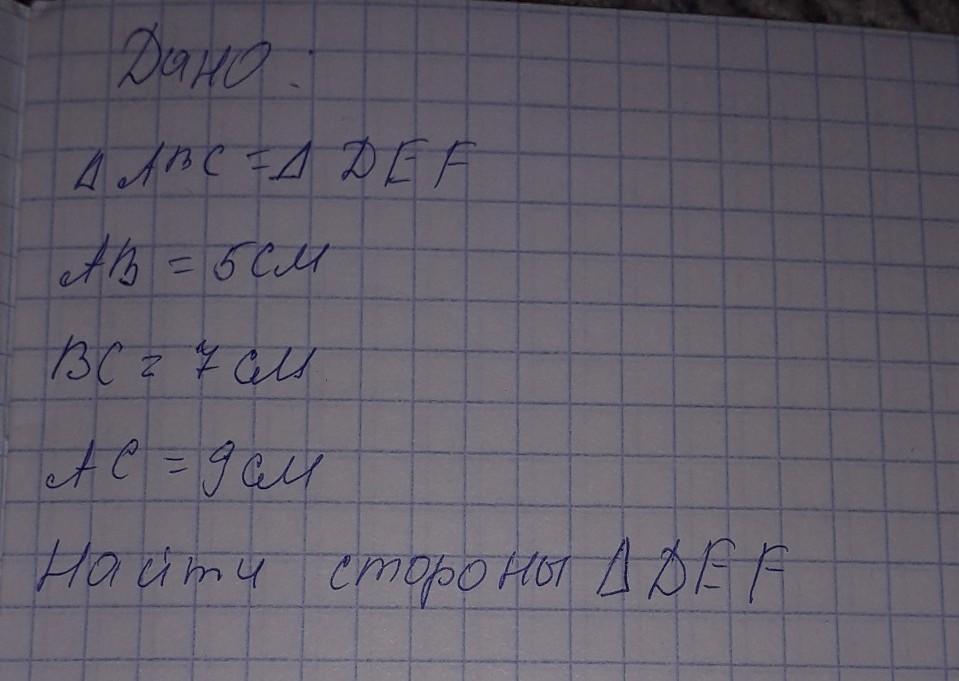 Дано:
Δ ABC = Δ DEF
AB = 5 см
BC = 7 см
AC = 9 см
Найти стороны Δ DEF